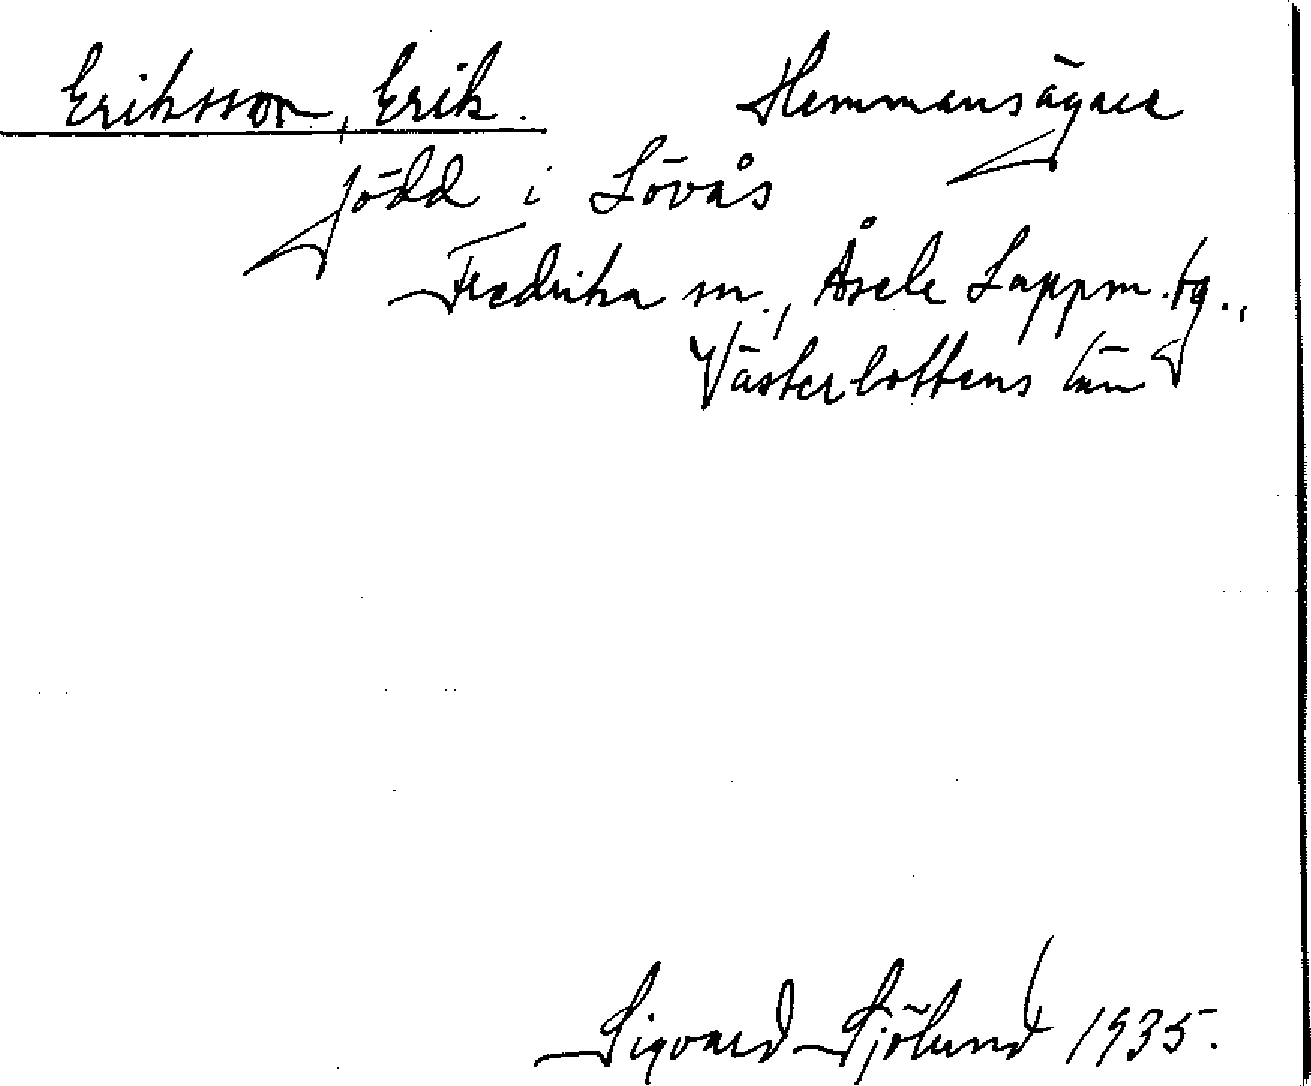 Eriksson, Erik. Hemmansägare
född i Lövås
Fredrika sn., Åsele Lappm. tg.,
Västerbottens län
Sigvard Sjölund 1935.